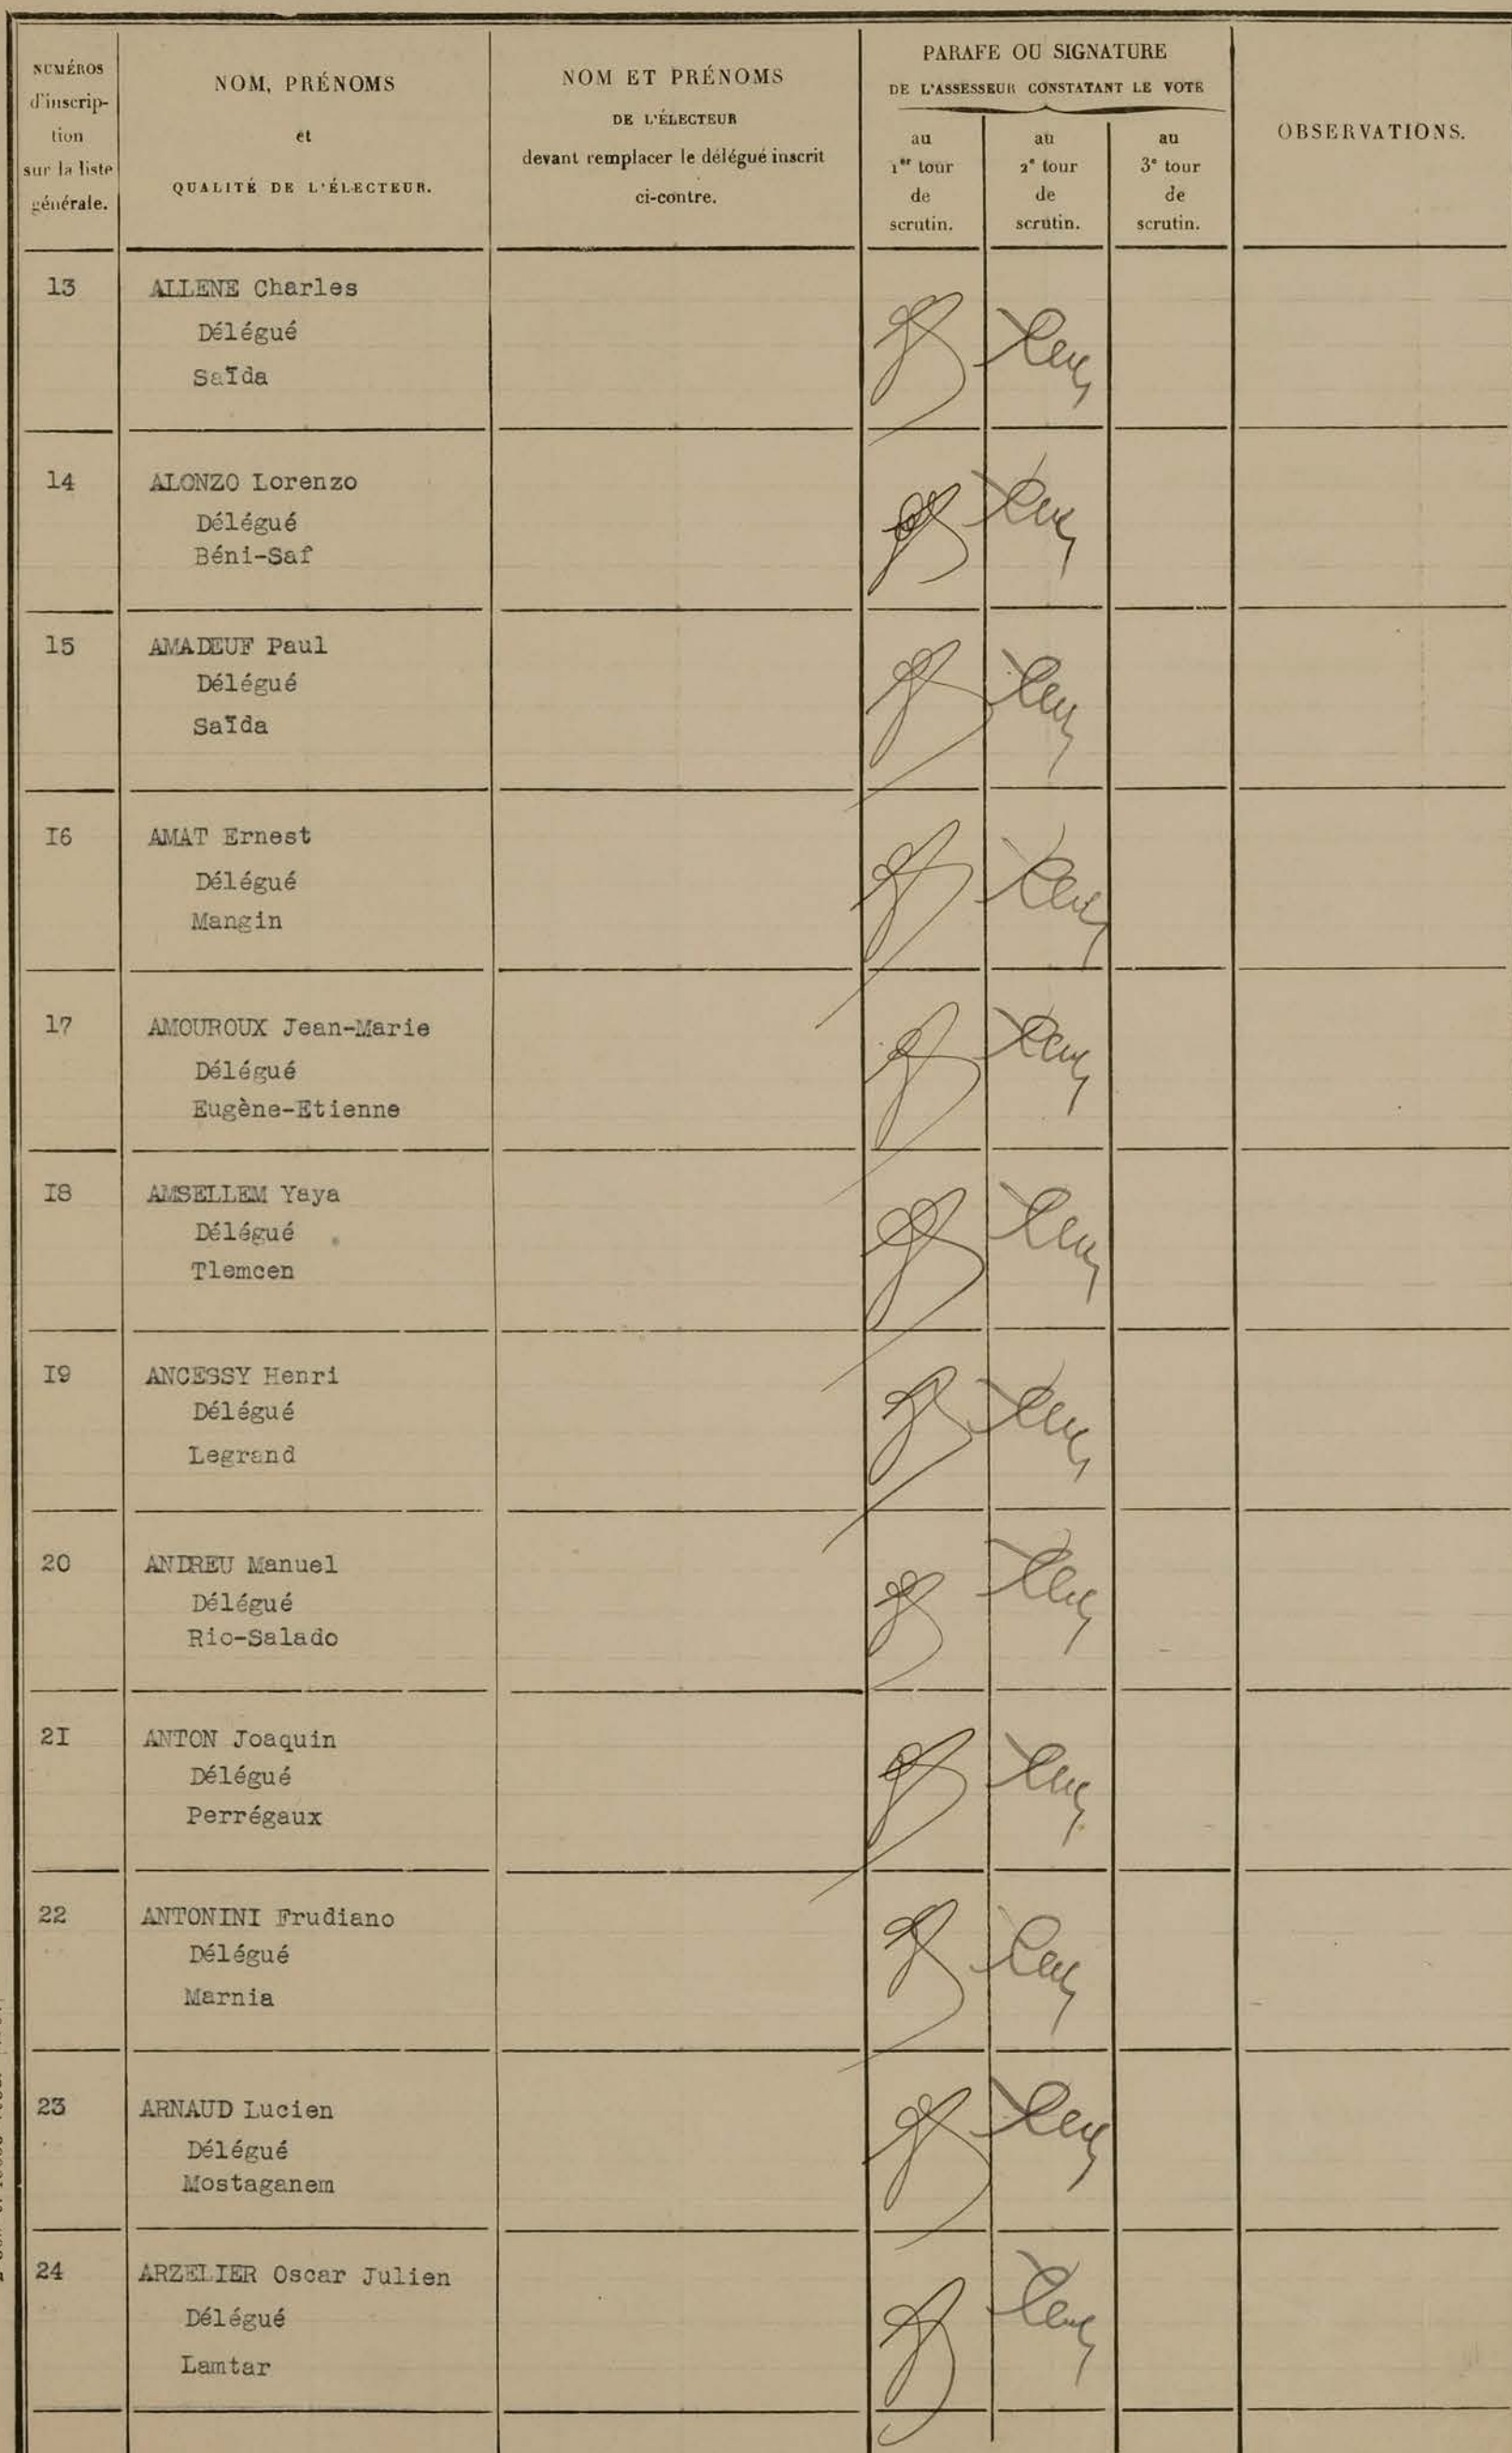 NUMÉROS
d'inscrip-
tion
sur la liste
générale.
NOM, PRÉNOMS
et
QUALITÉ DE L'ÉLECTEUR.
NOM ET PRÉNOMS
DE L'ÉLECTEUR
devant remplacer le délégué inscrit
ci-contre.
PARAFE OU SIGNATURE
DE L'ASSESSEUR CONSTATANT LE VOTE
au
1er tour
de
scrutin.
au
2e tour
de
scrutin.
au
3e tour
de
scrutin.
OBSERVATIONS.
13 ALLENE Charles
Délégué
Saïda
14 ALONZO Lorenzo
Délégué
Béni-Saf
15 AMADEUF Paul
Délégué
Saïda
I6 AMAT Ernest
Délégué
Mangin
17 AMOUROUX Jean-Marie
Délégué
Eugène-Etienne
I8 AMSELLEM Yaya
Délégué
Tlemcen
I9 ANCESSY Henri
Délégué
Legrand
20 ANDREU Manuel
Délégué
Rio-Salado
2I ANTON Joaquin
Délégué
Perrégaux
22 ANTONINI Frudiano
Délégué
Marnia
23 ARNAUD Lucien
Délégué
Mostaganem
24 ARZELIER Oscar Julien
Délégué
Lamtar